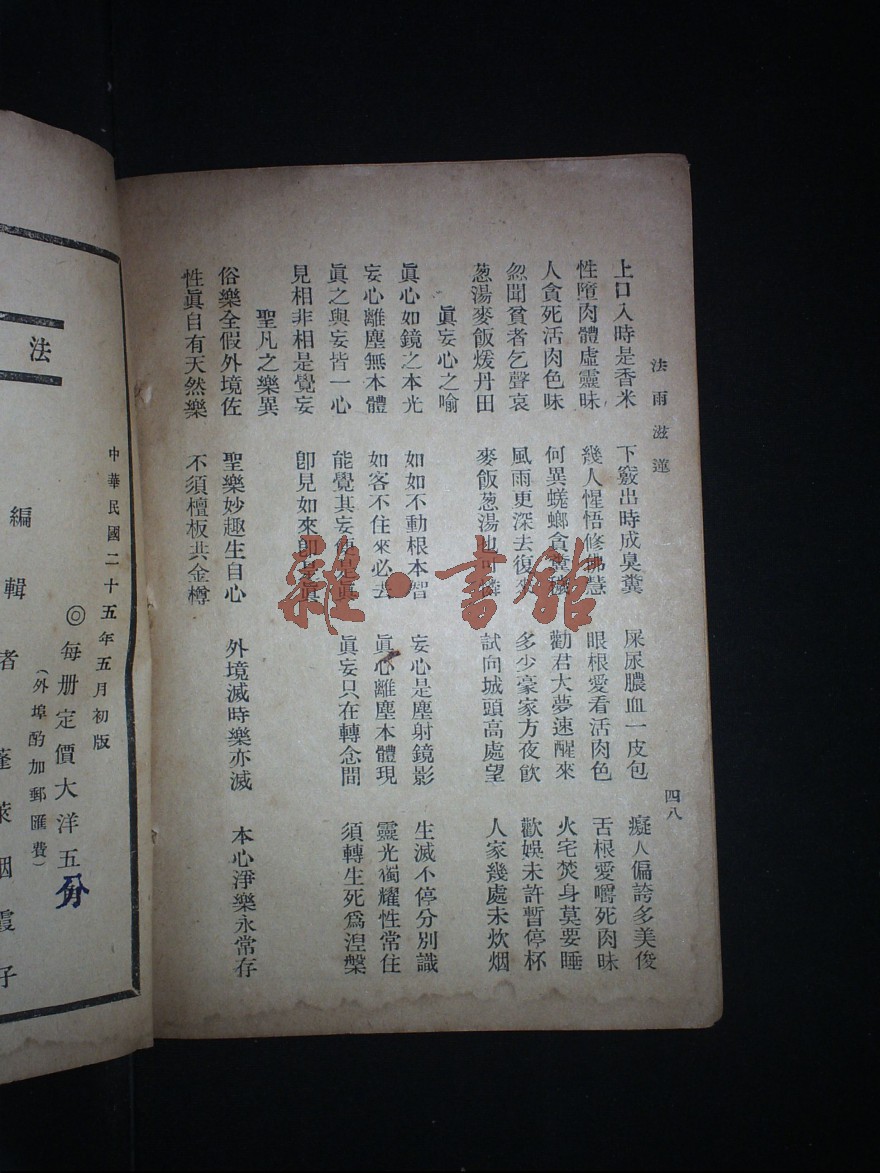 法雨滋蓮
四八
上口入時是香米 下竅出時成臭糞 屎尿膿血一皮包 癡人偏誇多美俊
性墮肉體虛靈昧 幾人惺悟修佛慧 眼根愛看活肉色 舌根愛嚼死肉味
人貪死活肉色味 何異蜣螂貪糞穢 勸君大夢速醒來 火宅焚身莫要睡
忽聞貧者乞聲哀 風雨更深去復來 多少豪家方夜飲 歡娛未許暫停杯
葱湯麥飯煖丹田 麥飯葱湯也可憐 試向城頭高處望 人家幾處未炊烟
眞妄心之喻
眞心如鏡之本光 如如不動根本智 妄心是塵射鏡影 生滅不停分別識
妄心離塵無本體 如客不住來必去 眞心離塵本體現 靈光獨耀性常住
眞之與妄皆一心 能覺其妄便是眞 眞妄只在轉念間 須轉生死爲湼槃
見相非相是覺妄 卽見如來卽見眞
聖凡之樂異
俗樂全假外境佐 聖樂妙趣生自心 外境滅時樂亦滅 本心淨樂永常存
性眞自有天然樂 不須檀板共金樽
雜·書館
中華民國二十五年五月初版
◎每册定價大洋五分
(外埠酌加郵匯費)
法
編輯者 蓬萊烟霞子